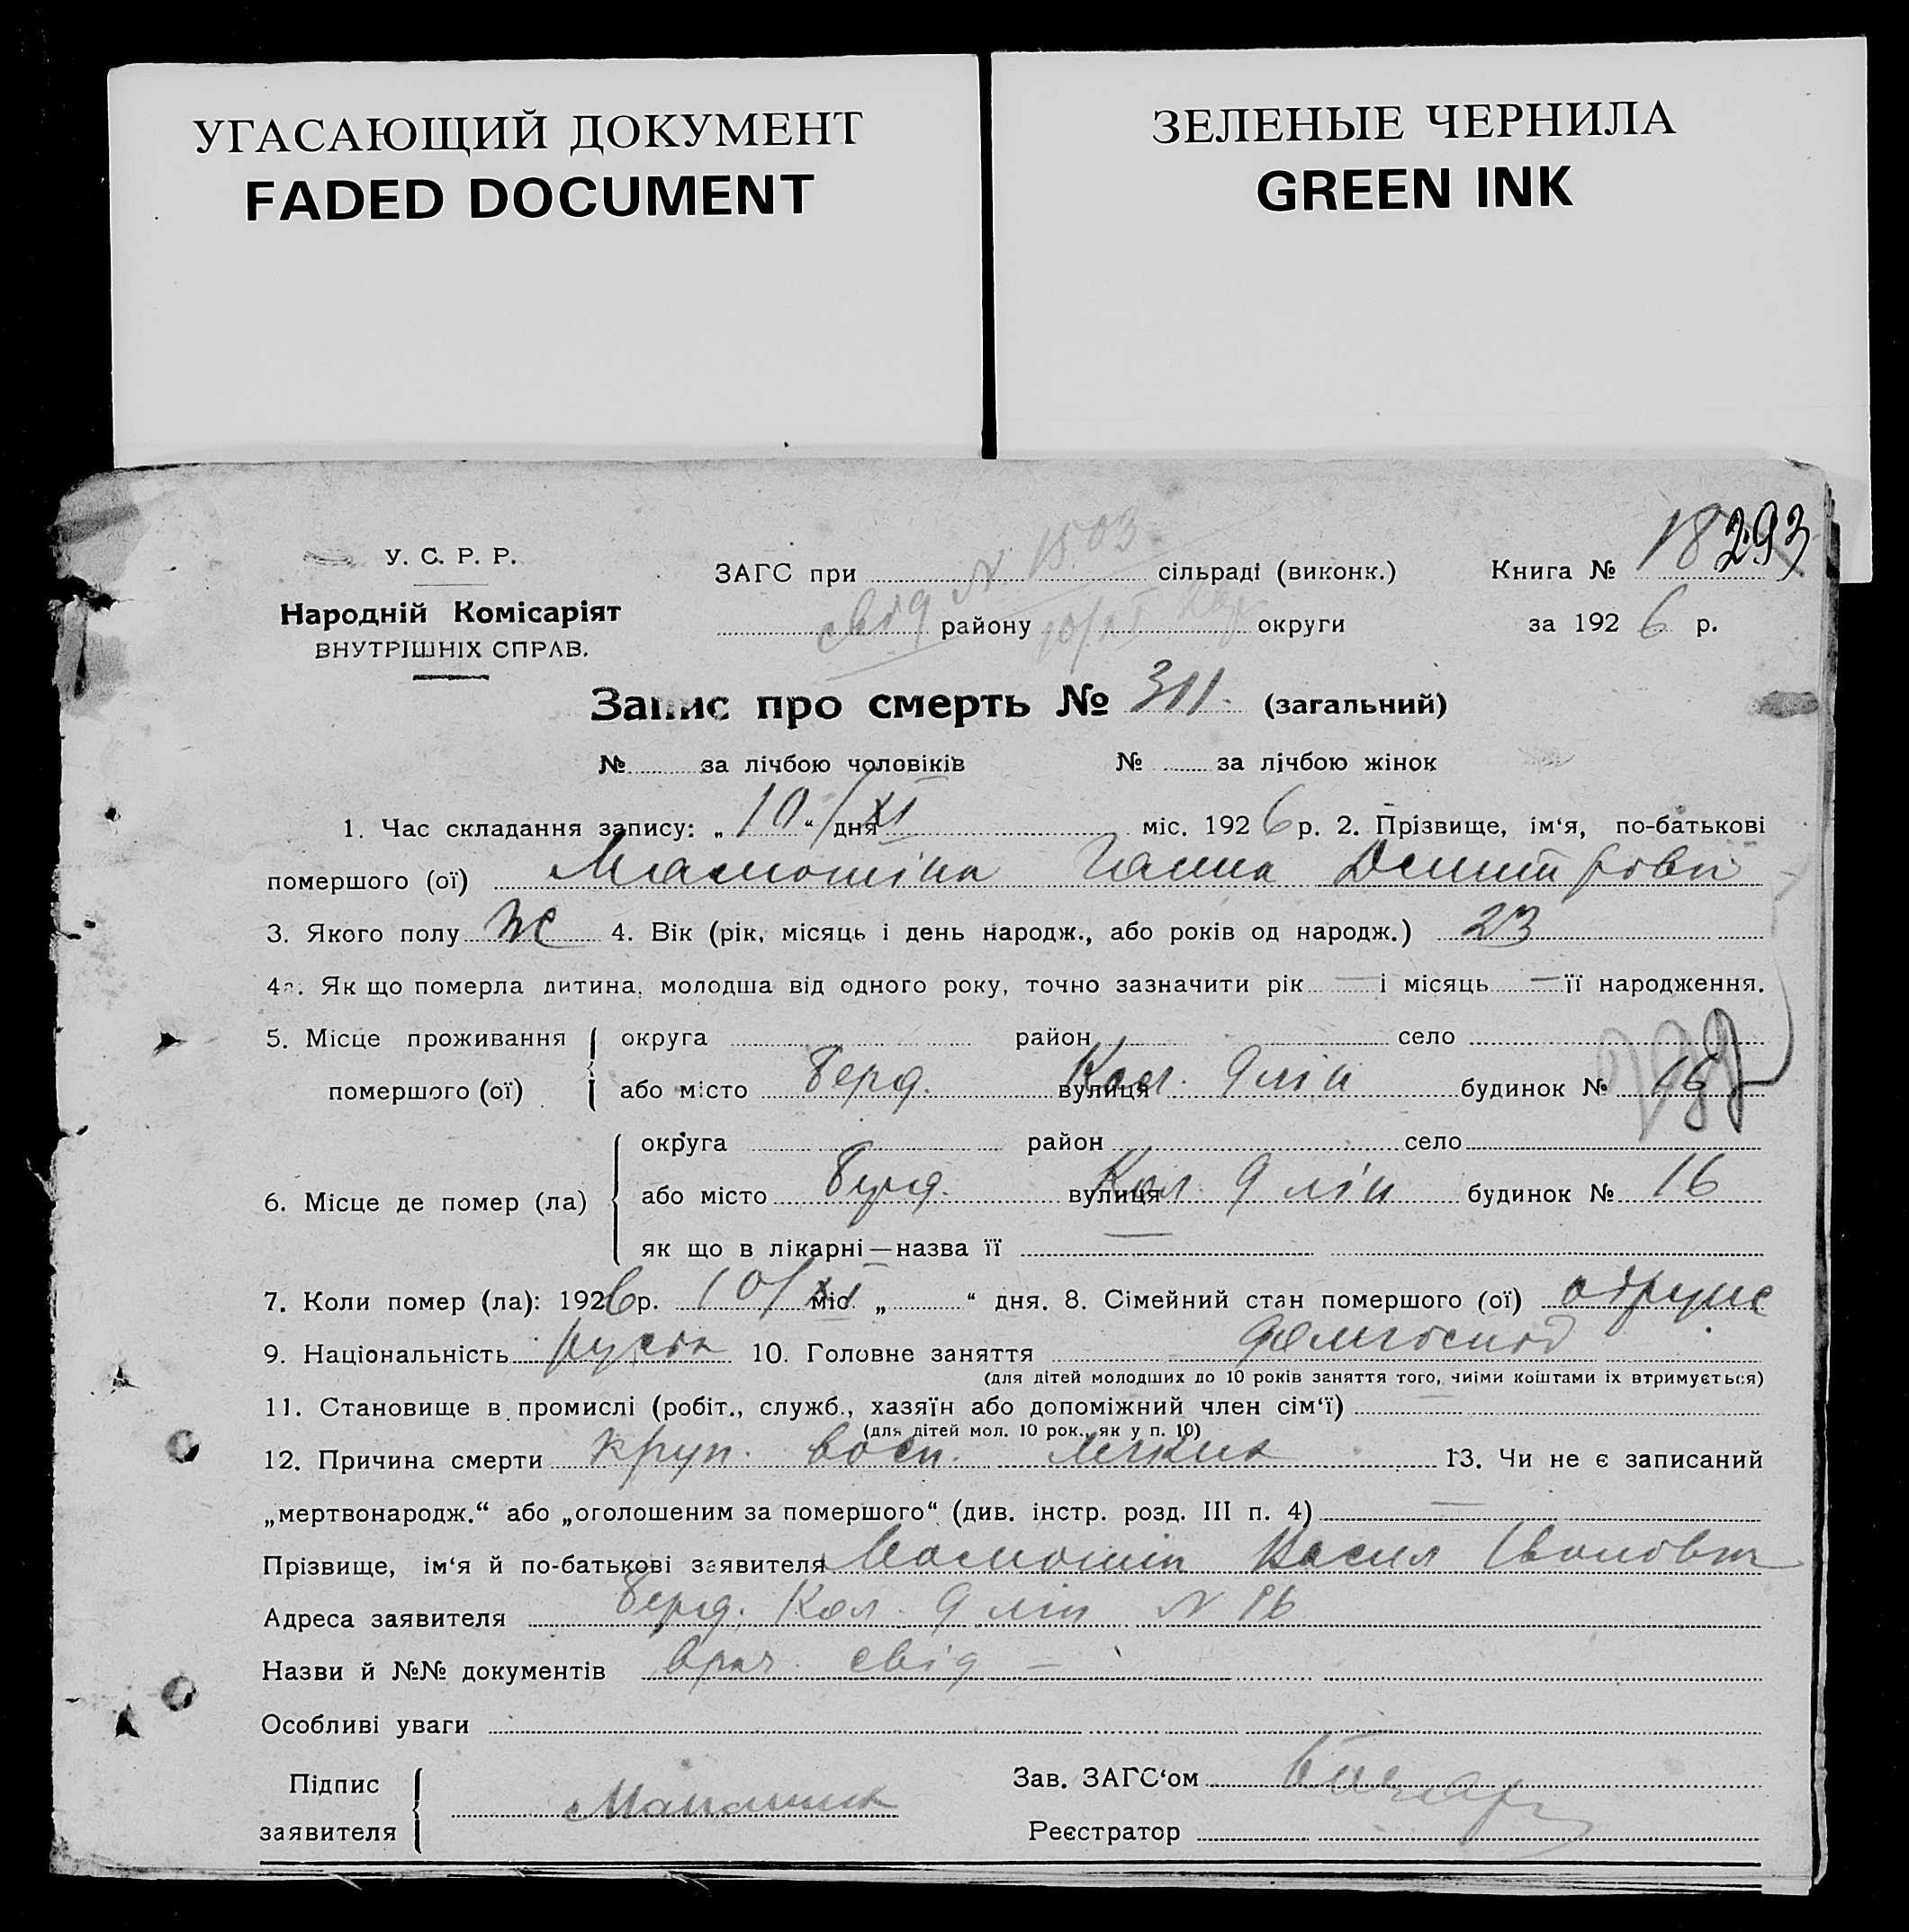 УГАСАЮЩИЙ ДОКУМЕНТ
FADED DOCUMENT
ЗЕЛЕНЫЕ ЧЕРНИЛА
GREEN INK
У. С. Р. Р.
Народній Комісаріят
ВНУТРІШНІХ СПРАВ.
ЗАГС при N 1503 сільраді (виконк.)
свід району 10/XI округи
Книга № 18 293
за 1926 р.
Запис про смерть № 311. (загальний)
№ за лічбою чоловіків № за лічбою жінок
1. Час складання запису: „10“ дня XI міс. 1926 р. 2. Прізвище, ім‘я, по-батькові
помершого (ої) Ганна
3. Якого полу Ж 4. Вік (рік, місяць і день народж., або років од народж.) 23
4а. Як що померла дитина, молодша від одного року, точно зазначити рік — і місяць — її народження.
5. Місце проживання помершого (ої) округа район село
або місто Берд. вулиця Кол. 9 лін будинок № 16
6. Місце де помер (ла) округа район село
або місто Берд. вулиця Кол. 9 лін будинок № 16
як що в лікарні—назва її —
7. Коли помер (ла): 1926 р. 10/XI міс. „ “ дня. 8. Сімейний стан помершого (ої) одруже
9. Національність руська 10. Головне заняття домгоспод
(для дітей молодших до 10 років заняття того, чиїми коштами їх втримується)
11. Становище в промислі (робіт., служб., хазяїн або допоміжний член сім‘ї) —
(для дітей мол. 10 рок., як у п. 10)
12. Причина смерти круп. восп. легких 13. Чи не є записаний
„мертвонародж.“ або „оголошеним за помершого“ (див. інстр. розд. III п. 4) —
Прізвище, ім‘я й по-батькові заявителя Василь Іванович
Адреса заявителя Берд. Кол. 9 лін N 16
Назви й №№ документів врач. свід —
Особливі уваги
Підпис заявителя
Зав. ЗАГС‘ом
Реєстратор